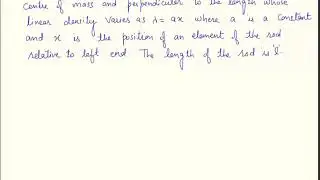 Centre of mass and perpendicular to the length whose
linear density varies as λ = ax where a is a constant
and x is the position of an element of the rod
relative to left end The length of the rod is 'l'